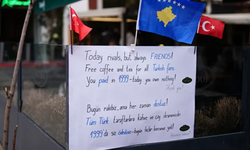 Today rivals, but always FRIENDS!
Free coffee and tea for all Turkish fans
You paid in 1999 - today you owe nothing!
Bugün rakibiz, ama her zaman dostuz!
Tüm Türk taraftarlara kahve ve çay
1999'da siz